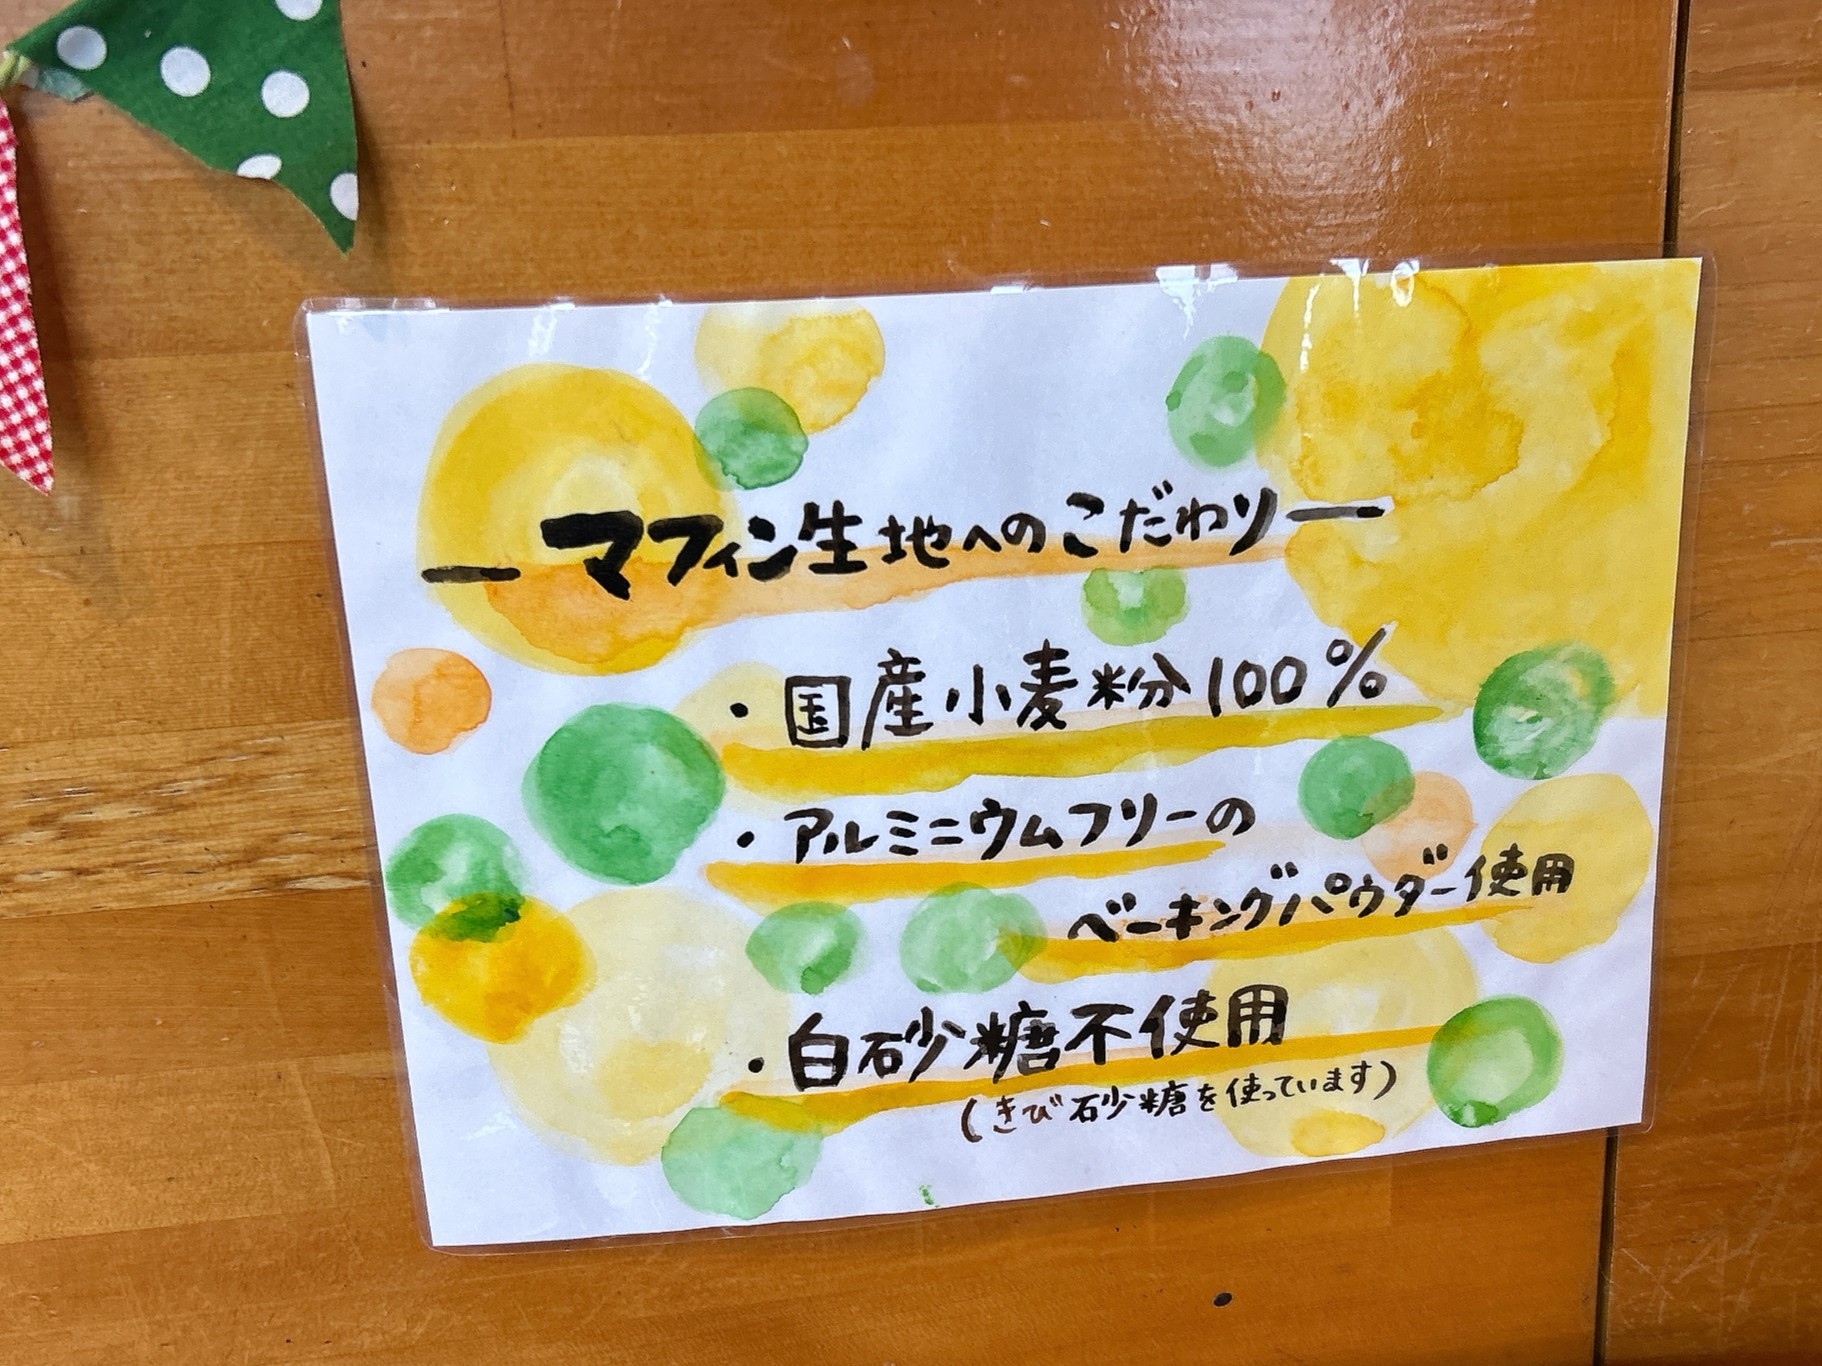 ―マフィン生地へのこだわり―
・国産小麦粉100%
・アルミニウムフリーの
ベーキングパウダー使用
・白砂糖不使用
(きび砂糖を使っています)